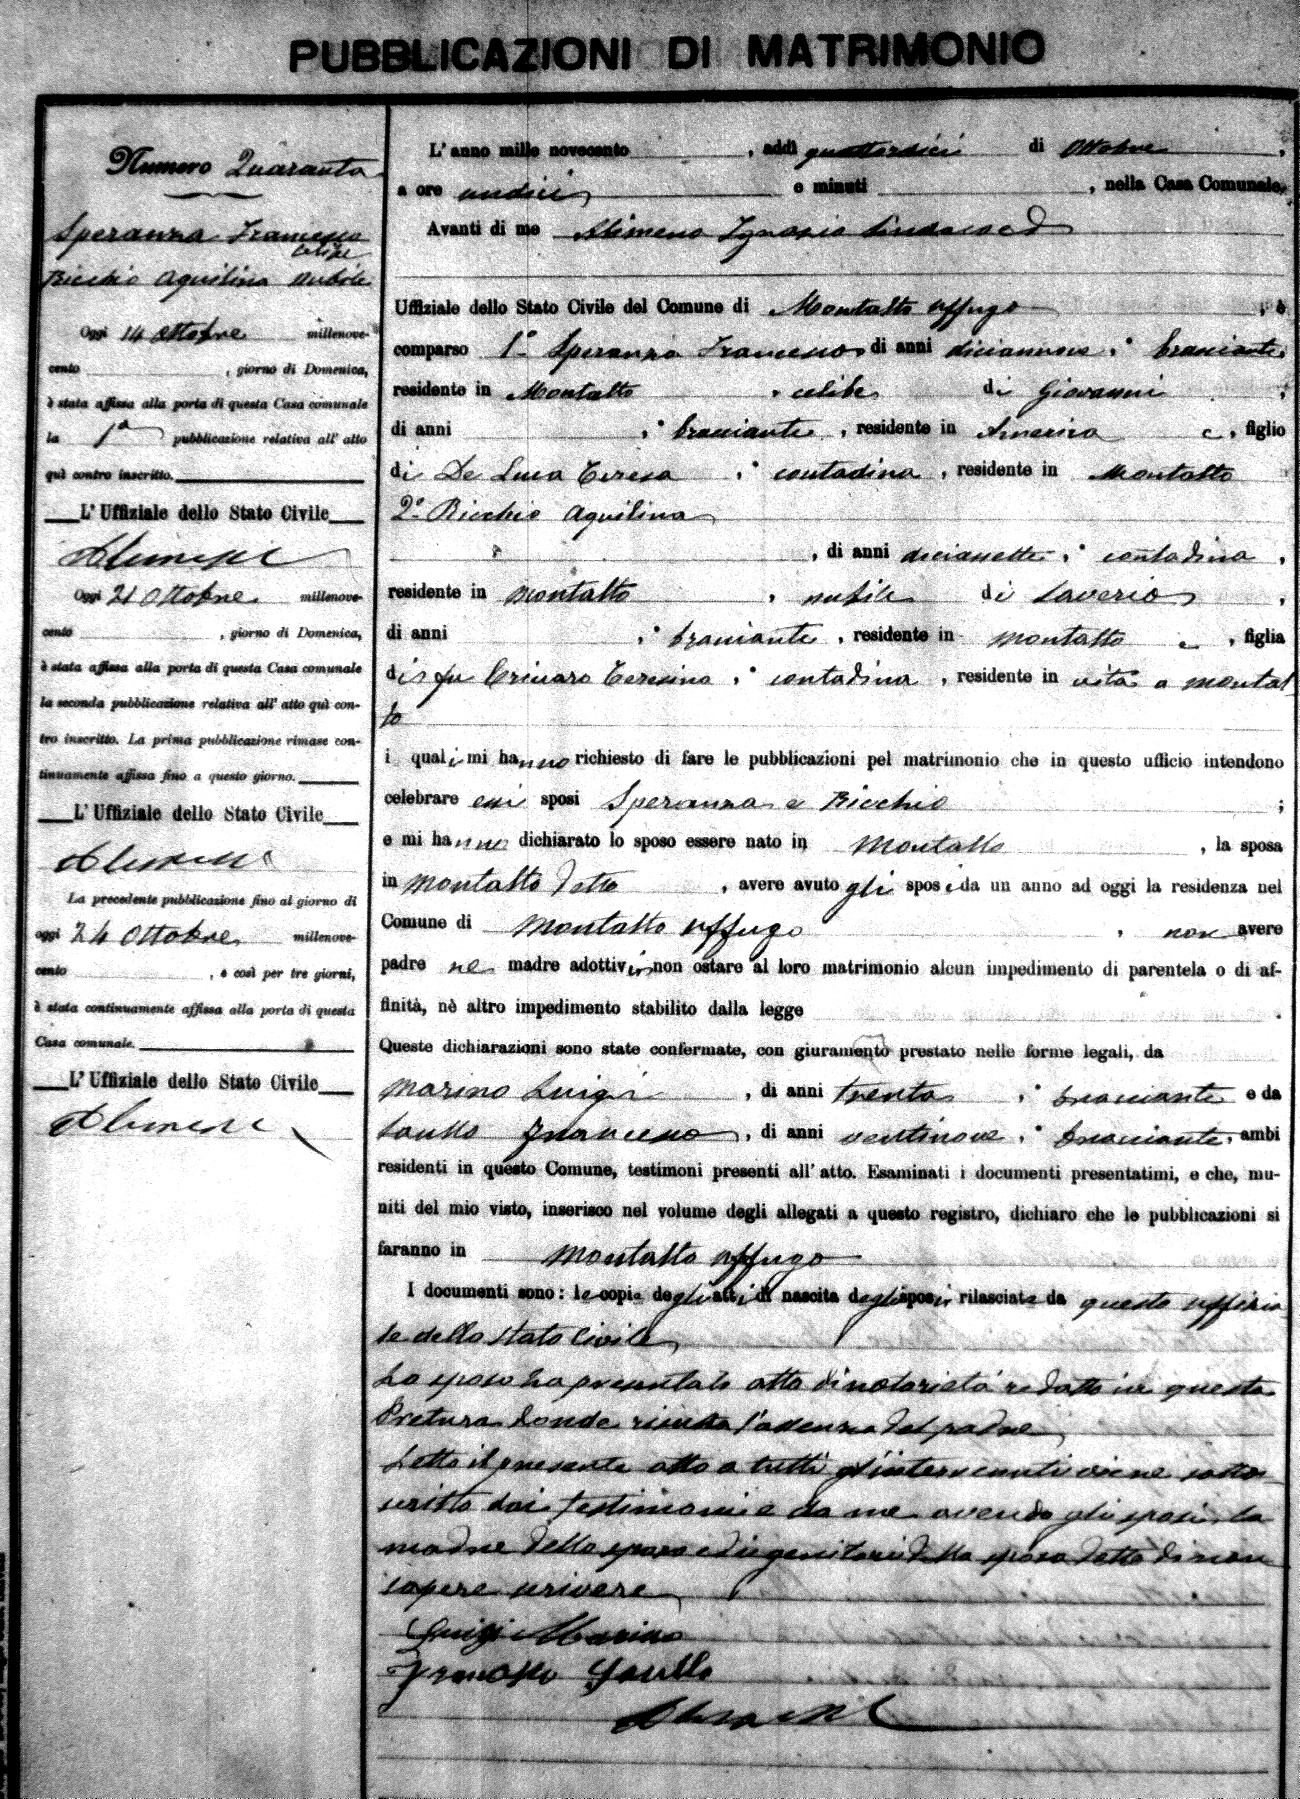 PUBBLICAZIONI DI MATRIMONIO
Numero Quaranta
Speranza Francesco
celibe
Ricchio Aquilina nubile
Oggi 14 Ottobre millenove-
cento , giorno di Domenica,
è stata affissa alla porta di questa Casa comunale
la 1ª pubblicazione relativa all' atto
quì contro inscritto.
L' Uffiziale dello Stato Civile
Oggi 21 Ottobre millenove-
cento , giorno di Domenica,
è stata affissa alla porta di questa Casa comunale
la seconda pubblicazione relativa all' atto quì con-
tro inscritto. La prima pubblicazione rimase con-
tinuamente affissa fino a questo giorno.
L' Uffiziale dello Stato Civile
La precedente pubblicazione fino al giorno di
oggi 24 Ottobre millenove-
cento , e così per tre giorni,
è stata continuamente affissa alla porta di questa
Casa comunale.
L' Uffiziale dello Stato Civile
L' anno mille novecento , addì quattordici di Ottobre ,
a ore undici e minuti , nella Casa Comunale.
Avanti di me Alimena Ignazio Sindaco ed
Uffiziale dello Stato Civile del Comune di Montalto Uffugo , è
comparso 1º Speranza Francesco di anni diciannove, bracciante
residente in Montalto , celibe di Giovanni ,
di anni , bracciante , residente in America e , figlio
di De Luca Teresa , contadina , residente in Montalto
2º Ricchio Aquilina
, di anni diciassette , contadina ,
residente in Montalto , nubile di Saverio ,
di anni , bracciante , residente in Montalto e , figlia
di fu Crivaro Teresina , contadina , residente in vita a Montal
to
i quali mi hanno richiesto di fare le pubblicazioni pel matrimonio che in questo ufficio intendono
celebrare essi sposi Speranza e Ricchio ;
e mi hanno dichiarato lo sposo essere nato in Montalto , la sposa
in Montalto detto , avere avuto gli sposi da un anno ad oggi la residenza nel
Comune di Montalto Uffugo , non avere
padre nè madre adottivi, non ostare al loro matrimonio alcun impedimento di parentela o di af-
finità, nè altro impedimento stabilito dalla legge .
Queste dichiarazioni sono state confermate, con giuramento prestato nelle forme legali, da
Marino Luigi , di anni trenta , bracciante e da
Saullo Francesco , di anni ventinove , bracciante, ambi
residenti in questo Comune, testimoni presenti all' atto. Esaminati i documenti presentatimi, e che, mu-
niti del mio visto, inserisco nel volume degli allegati a questo registro, dichiaro che le pubblicazioni si
faranno in Montalto Uffugo
I documenti sono: le copie degli atti di nascita degli sposi rilasciate da questo uffizia
le dello Stato Civile
Lo sposo ha presentato atto di notorietà redatto in questa
Pretura donde risulta l'assenza del padre
Letto il presente atto a tutti gl'intervenuti viene sotto
scritto dai testimoni e da me avendo gli sposi, la
madre dello sposo ed i genitori della sposa detto di non
sapere scrivere
Luigi Marino
Francesco Saullo